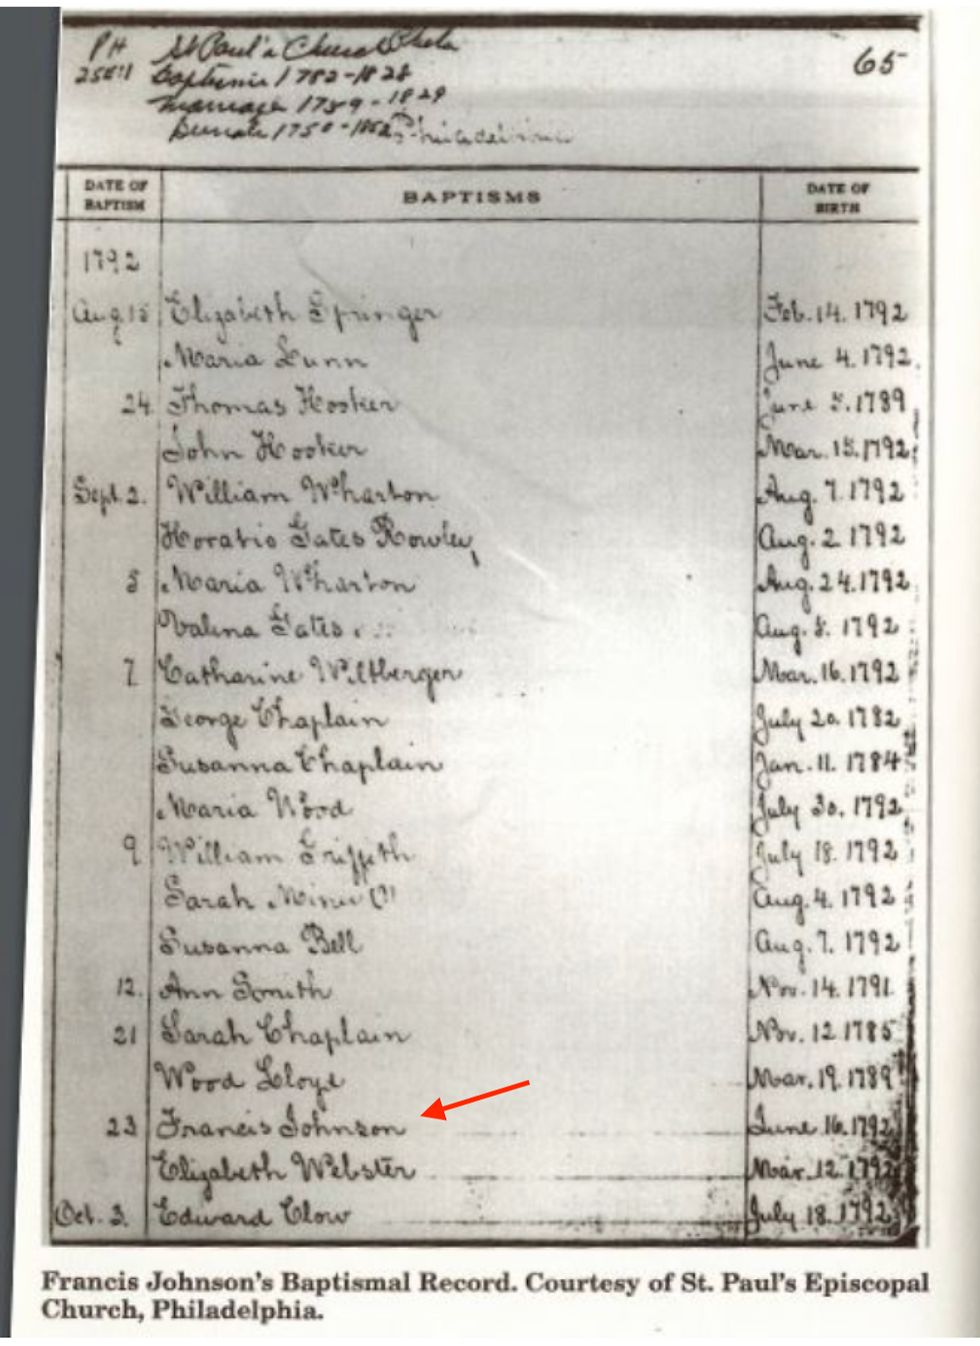 PH St Paul's Church Phila 65
25E:1 Baptisms 1782-1828
Marriage 1759-1829
Burials 1750-1852 Philadelphia
DATE OF BAPTISM BAPTISMS DATE OF BIRTH
1792
Aug. 15 Elizabeth Springer Feb. 14. 1792
Maria Lunn June 4. 1792.
24. Thomas Hooker June 5. 1789
John Hooker Mar. 15. 1792
Sept. 2. William Wharton Aug. 7. 1792
Horatio Gates Rowley Aug. 2 1792
5 Maria Wharton Aug. 24. 1792
Gates Aug. 5. 1792
7 Catharine Wiltberger Mar. 16. 1792
George Chaplain July 20. 1782
Susanna Chaplain Jan. 11. 1784
Maria Wood July 30. 1792
9 William Griffith July 18. 1792
Sarah (?) Aug. 4. 1792
Susanna Bell Aug. 7. 1792
12. Ann Smith Nov. 14. 1791
21 Sarah Chaplain Nov. 12 1785
Wood Lloyd Mar. 19. 1789
23 Francis Johnson June 16. 1792
Elizabeth Webster Mar. 12. 1792
Oct. 3. Edward Clow July 18. 1792
Francis Johnson's Baptismal Record. Courtesy of St. Paul's Episcopal
Church, Philadelphia.